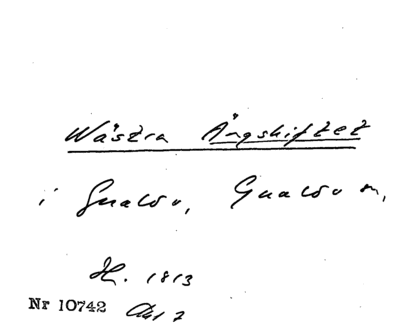 Wästra Ängskiftet
i Gualöv, Gualöv sn,
H. 1813
Nr 10742